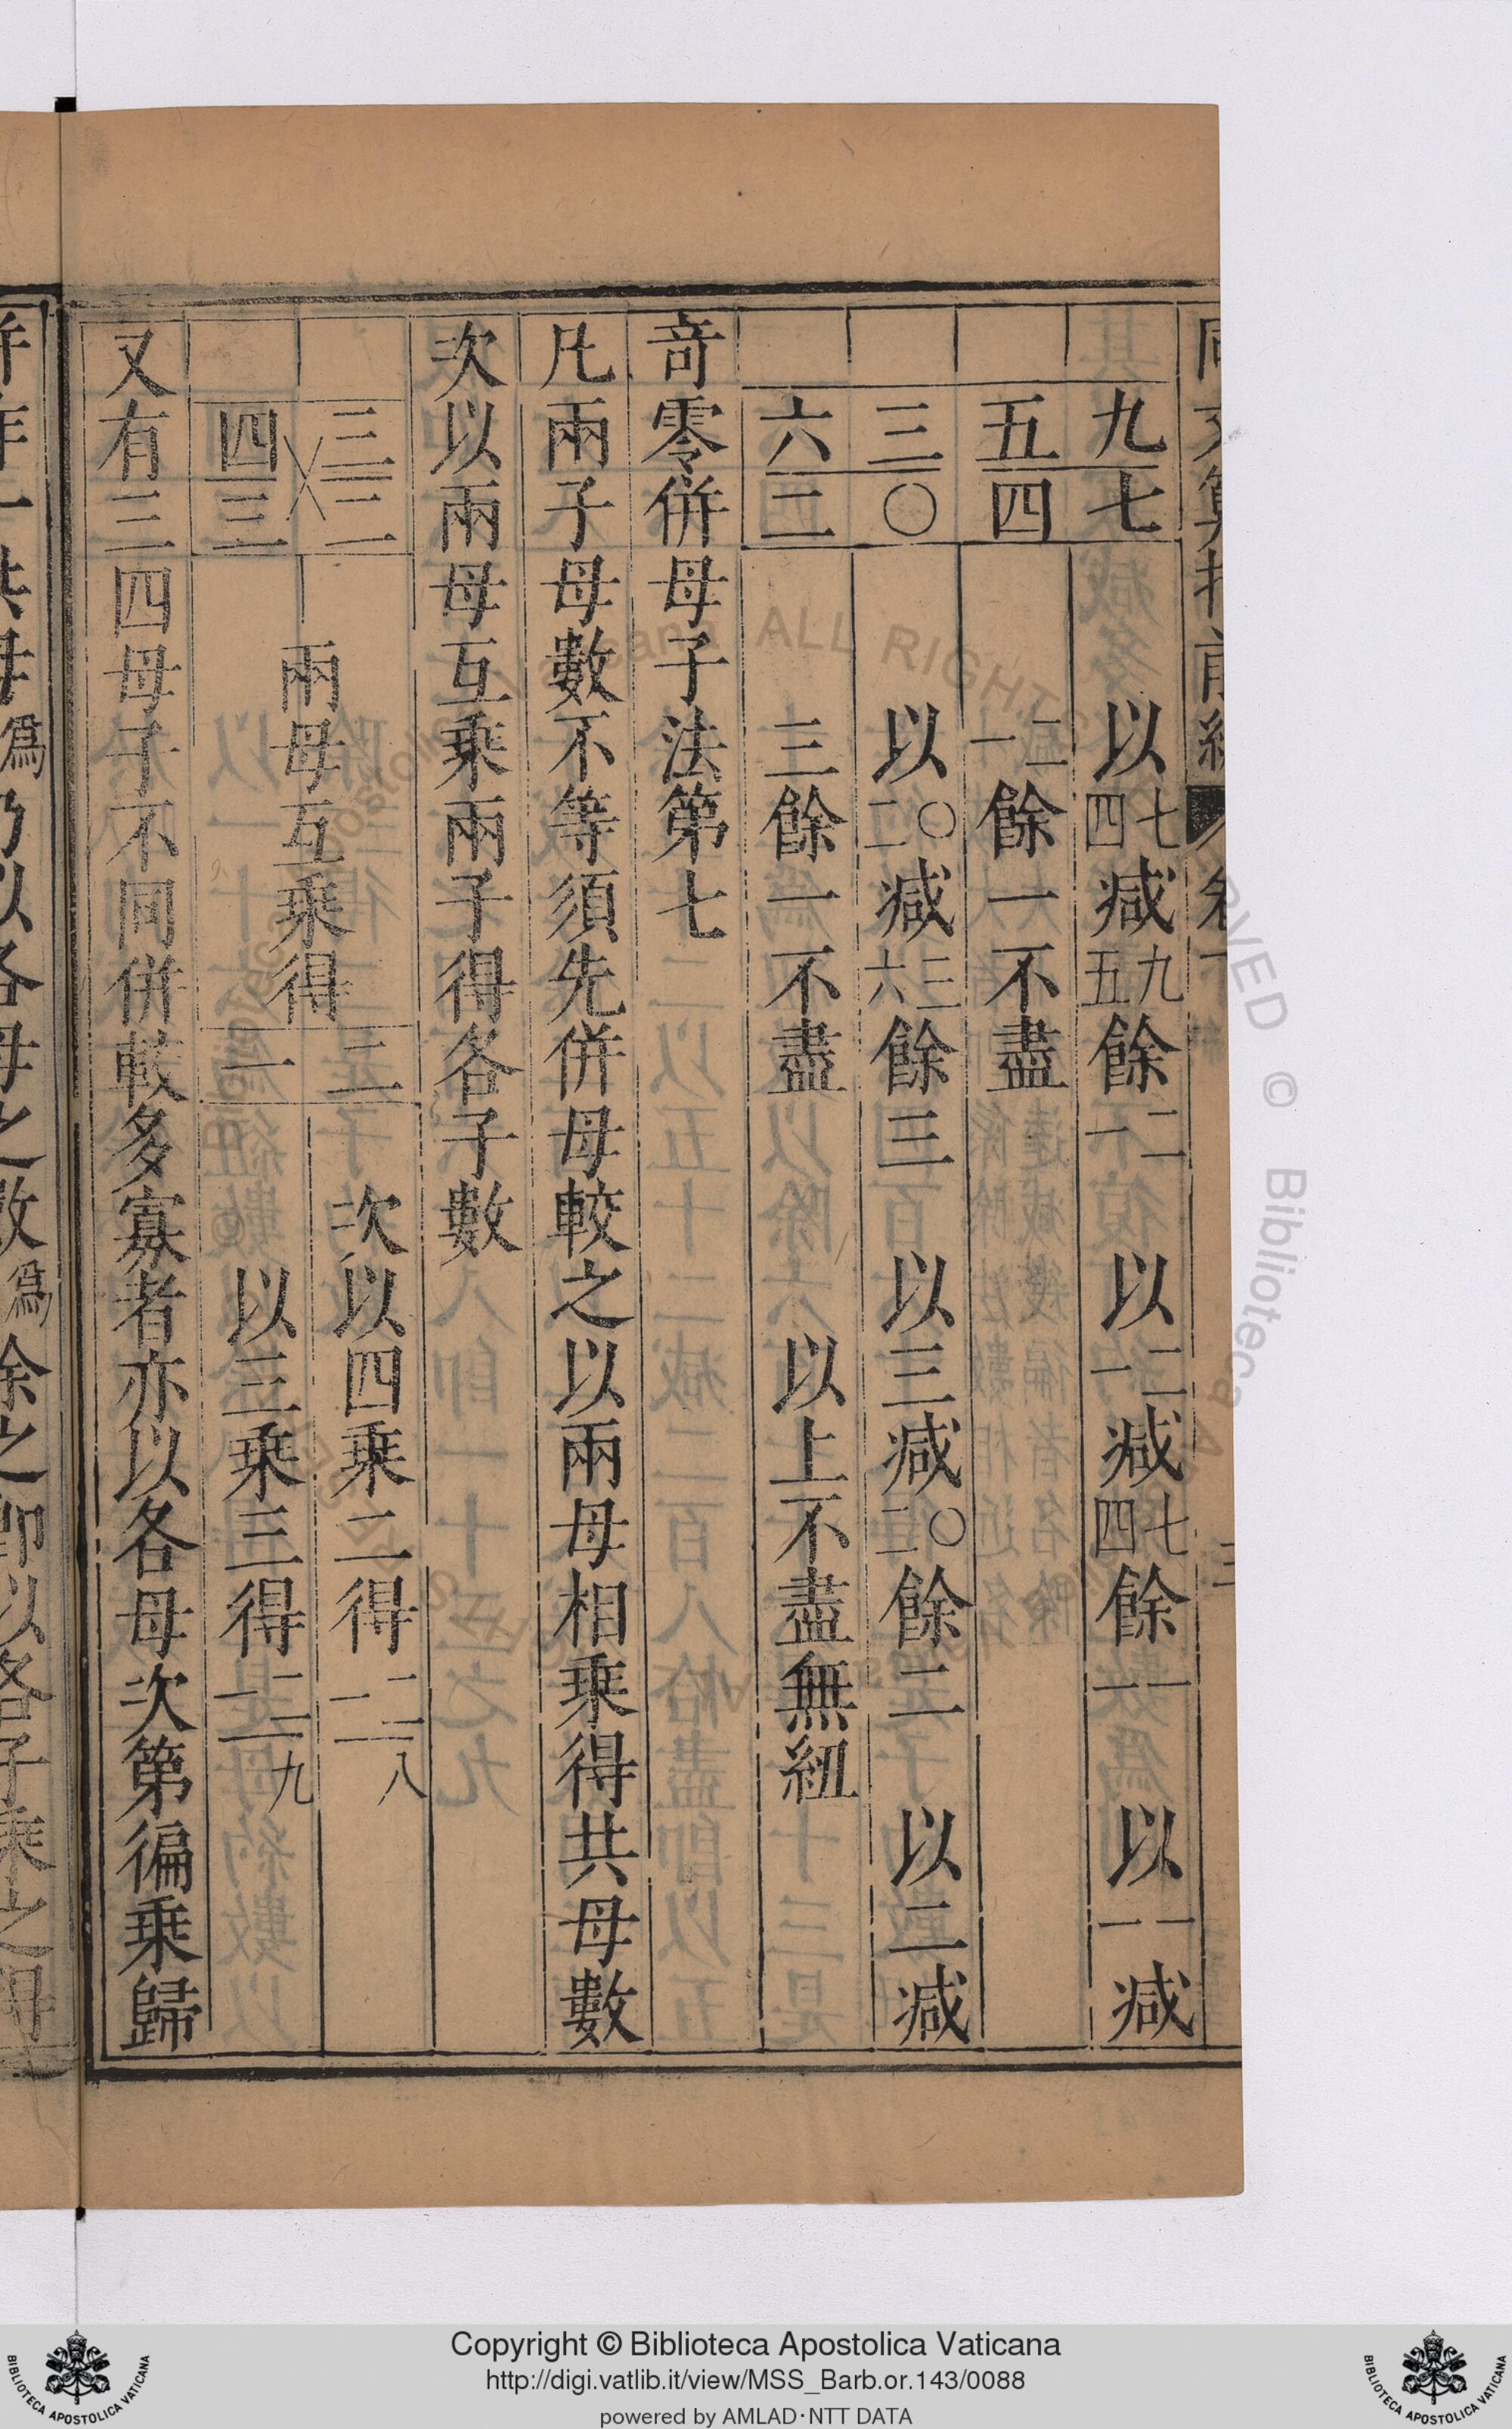 九七 以四七減五九餘一二 以一二減四七餘一一 以一一減
五四 一二餘一不盡
三〇 以二〇減六三餘三 以三減二〇餘二 以二減
六二 三餘一不盡 以上不盡無紐
奇零併母子法第七
凡兩子母數不等須先併母較之以兩母相乘得共母數
次以兩母互乘兩子得各子數
三二
四三
兩母互乘得
一二
次以四乘二得一二八
以三乘三得一二九
又有三四母子不同併較多寡者亦以各母次第徧乘歸
ALL RIGHTS RESERVED © Biblioteca Apostolica Vaticana
Copyright © Biblioteca Apostolica Vaticana
http://digi.vatlib.it/view/MSS_Barb.or.143/0088
powered by AMLAD·NTT DATA
BIBLIOTECA APOSTOLICA VATICANA
BIBLIOTECA APOSTOLICA VATICANA